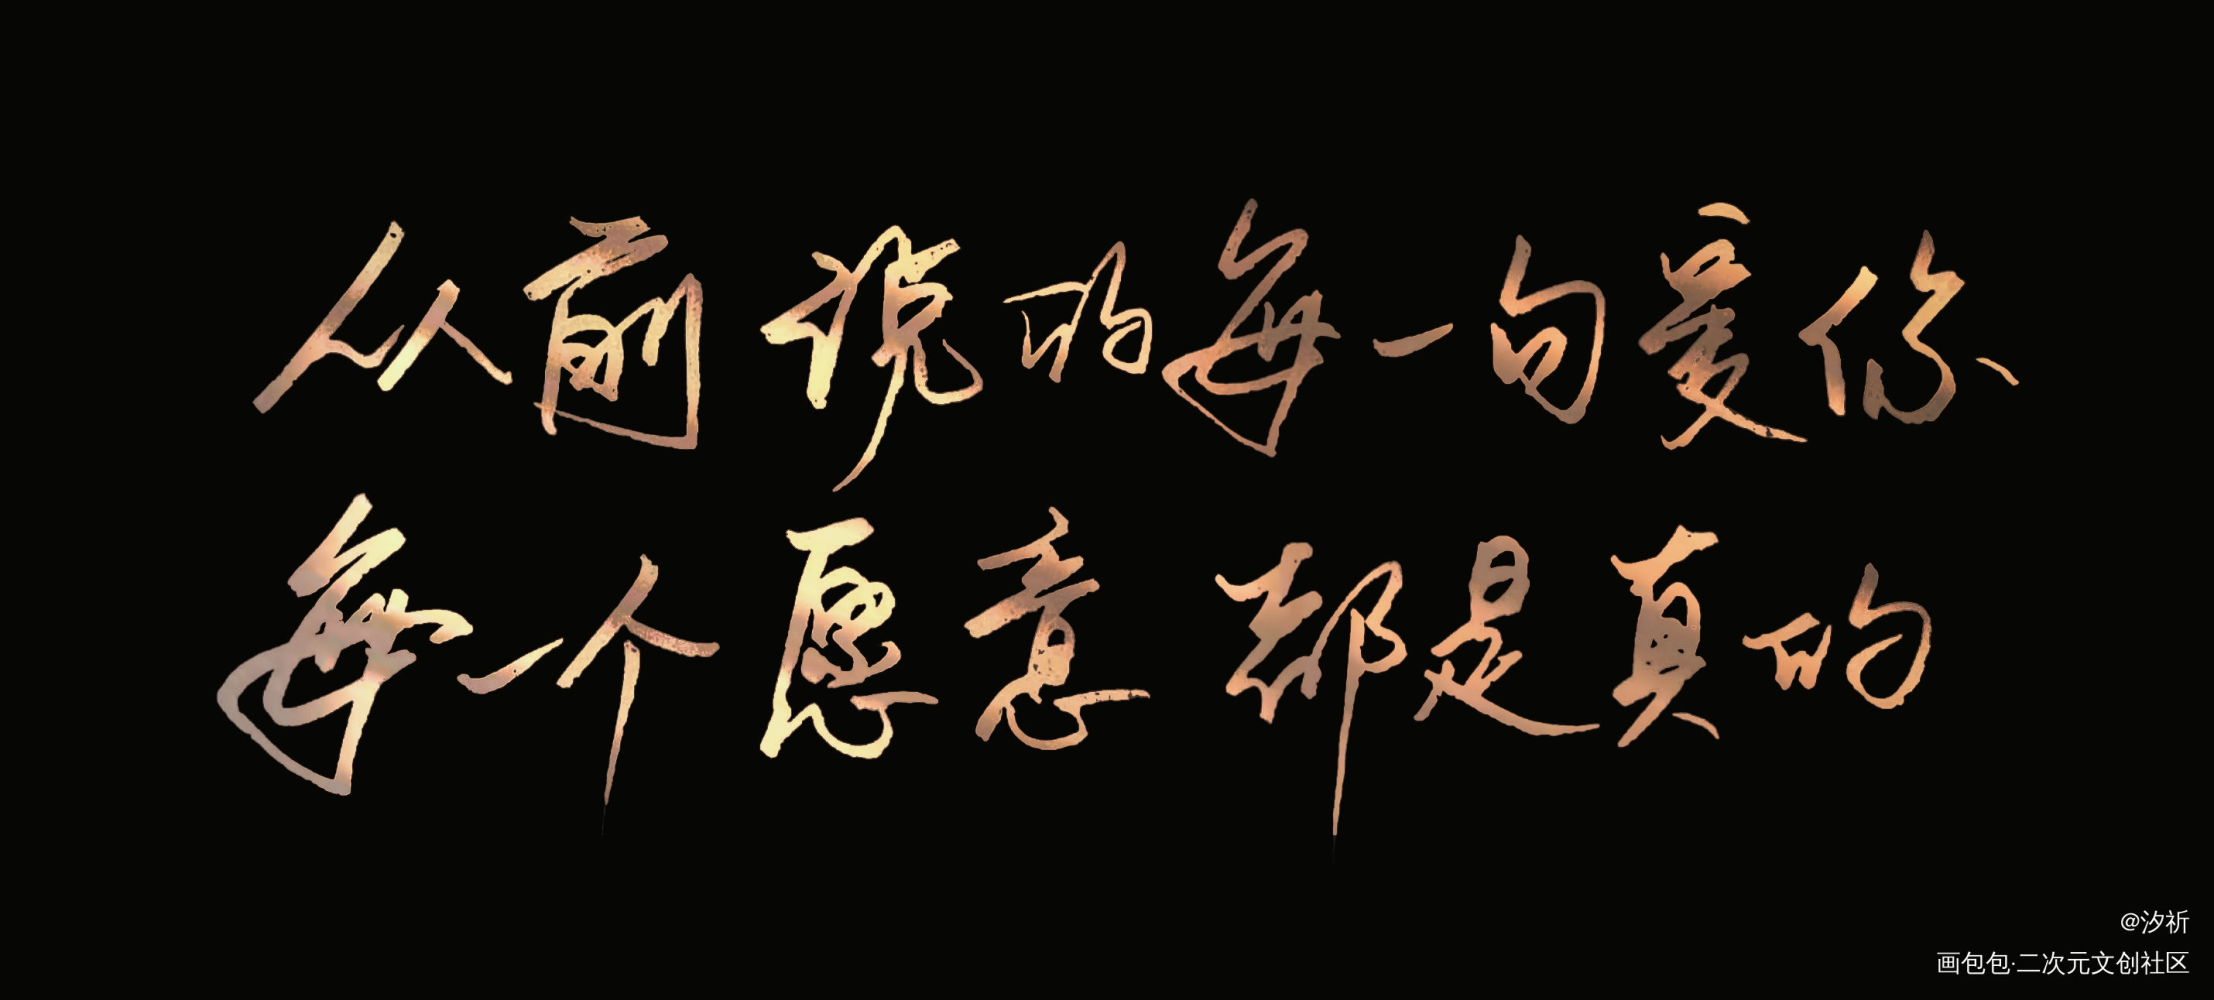 从前说的每一句爱你
每一个愿意都是真的
@汐祈
画包包·二次元文创社区